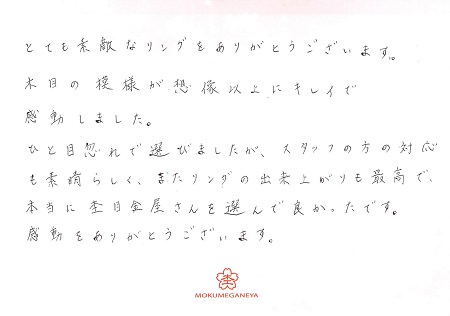 とても素敵なリングをありがとうございます。
木目の模様が想像以上にキレイで
感動しました。
ひと目惚れで選びましたが、スタッフの方の対応
も素晴らしく、またリングの出来上がりも最高で、
本当に杢目金屋さんを選んで良かったです。
感動をありがとうございます。
MOKUMEGANEYA